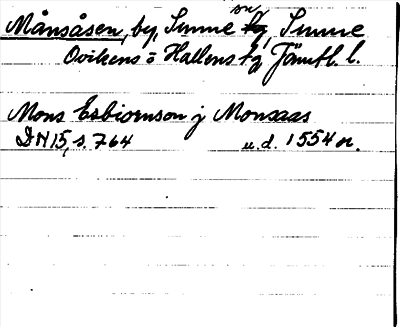 Månsåsen, by, Sunne sn, Sunne
Ovikens o Hallens tg Jämtl. l.
Mons Esbiornson j Monsaas
DN 15, s. 764 u.d. 1554 n.